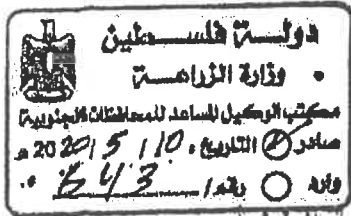 دولة فلسطين
وزارة الزراعة
مكتب الوكيل المساعد للمحافظات الجنوبية
صادر التاريخ: 10 / 5 / 2020 م
وارد رقم / 643